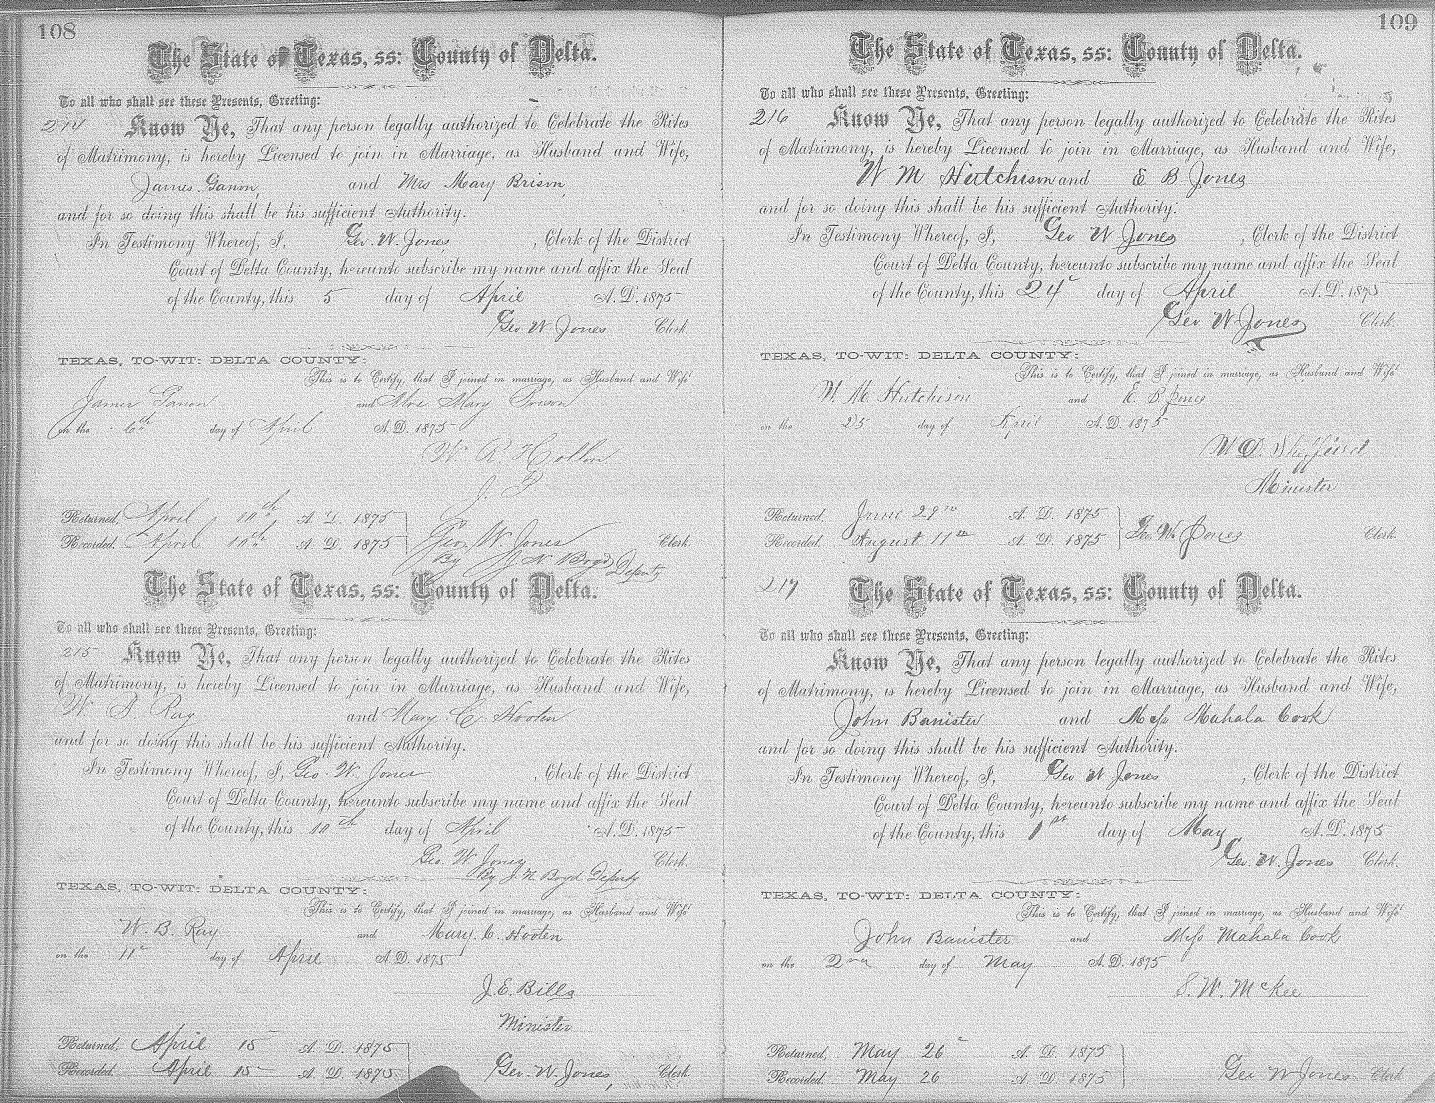 108
The State of Texas, ss: County of Delta.
To all who shall see these Presents, Greeting:
214 Know Ye, That any person legally authorized to Celebrate the Rites
of Matrimony, is hereby Licensed to join in Marriage, as Husband and Wife,
James Ganon, and Mrs Mary Brison,
and for so doing this shall be his sufficient Authority.
In Testimony Whereof, I, Geo. W. Jones, Clerk of the District
Court of Delta County, hereunto subscribe my name and affix the Seal
of the County, this 5 day of April A.D. 1875
Geo W Jones Clerk
TEXAS, TO-WIT: DELTA COUNTY:
This is to Certify, that I joined in marriage, as Husband and Wife
James Ganon and Mrs Mary Brison
on the 6th day of April A.D. 1875
W R Hollon
J. P
Returned, April 10th A. D. 1875
Recorded. April 10th A. D. 1875 Geo W Jones Clerk
By J N Boyd Deputy
The State of Texas, ss: County of Delta.
To all who shall see these Presents, Greeting:
215 Know Ye, That any person legally authorized to Celebrate the Rites
of Matrimony, is hereby Licensed to join in Marriage, as Husband and Wife,
W B Ray and Mary C Hooten
and for so doing this shall be his sufficient Authority.
In Testimony Whereof, I, Geo. W. Jones, Clerk of the District
Court of Delta County, hereunto subscribe my name and affix the Seal
of the County, this 10th day of April A.D. 1875
Geo. W Jones Clerk.
By J. N Boyd Deputy
TEXAS, TO-WIT: DELTA COUNTY:
This is to Certify, that I joined in marriage, as Husband and Wife
W. B. Ray and Mary. C. Hooten
on the 11 day of April A.D. 1875
J. E. Bills
Minister
Returned, April 15 A. D. 1875
Recorded. April 15 A. D. 1875 Geo. W. Jones, Clerk
109
The State of Texas, ss: County of Delta.
To all who shall see these Presents, Greeting:
216 Know Ye, That any person legally authorized to Celebrate the Rites
of Matrimony, is hereby Licensed to join in Marriage, as Husband and Wife,
W M Hutchison and E B Jones
and for so doing this shall be his sufficient Authority.
In Testimony Whereof, I, Geo W Jones, Clerk of the District
Court of Delta County, hereunto subscribe my name and affix the Seal
of the County, this 24 day of April A.D. 1875
Geo W Jones Clerk.
TEXAS, TO-WIT: DELTA COUNTY:
This is to Certify, that I joined in marriage, as Husband and Wife
W. M Hutchison and E B Jones
on the 25 day of April A.D. 1875
W D
Minister
Returned, June 29th A. D. 1875
Recorded. August 11th A. D. 1875 Geo. W. Jones Clerk
217 The State of Texas, ss: County of Delta.
To all who shall see these Presents, Greeting:
Know Ye, That any person legally authorized to Celebrate the Rites
of Matrimony, is hereby Licensed to join in Marriage, as Husband and Wife,
John Banister and Miss Mahala Cook
and for so doing this shall be his sufficient Authority.
In Testimony Whereof, I, Geo W Jones, Clerk of the District
Court of Delta County, hereunto subscribe my name and affix the Seal
of the County, this 1st day of May A.D. 1875
Geo. W. Jones Clerk.
TEXAS, TO-WIT: DELTA COUNTY:
This is to Certify, that I joined in marriage, as Husband and Wife
John Banister and Miss Mahala Cook
on the 2nd day of May A.D. 1875
S. W. McKee
Returned, May 26 A. D. 1875
Recorded. May 26 A. D. 1875 Geo W Jones Clerk